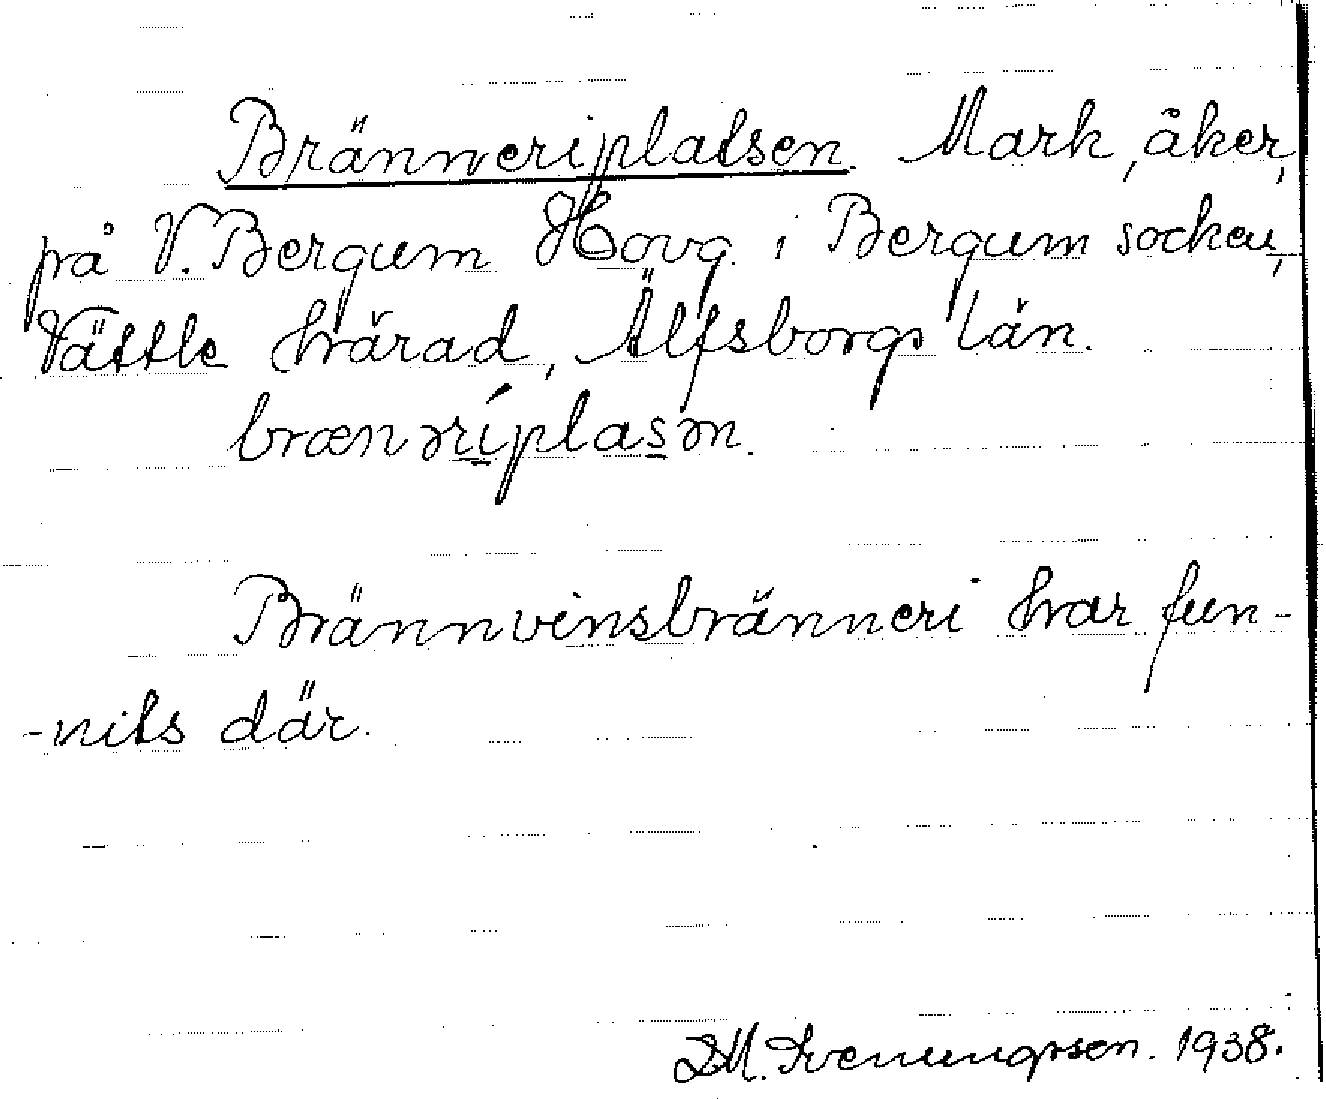 Bränneriplatsen. Mark, åker,
på V. Bergum Hovg. i Bergum socken,
Vättle härad, Älfsborgs län.
brænəríplasən.
Brännvinsbränneri har fun-
-nits där.
D.M. Svenungsson. 1938.